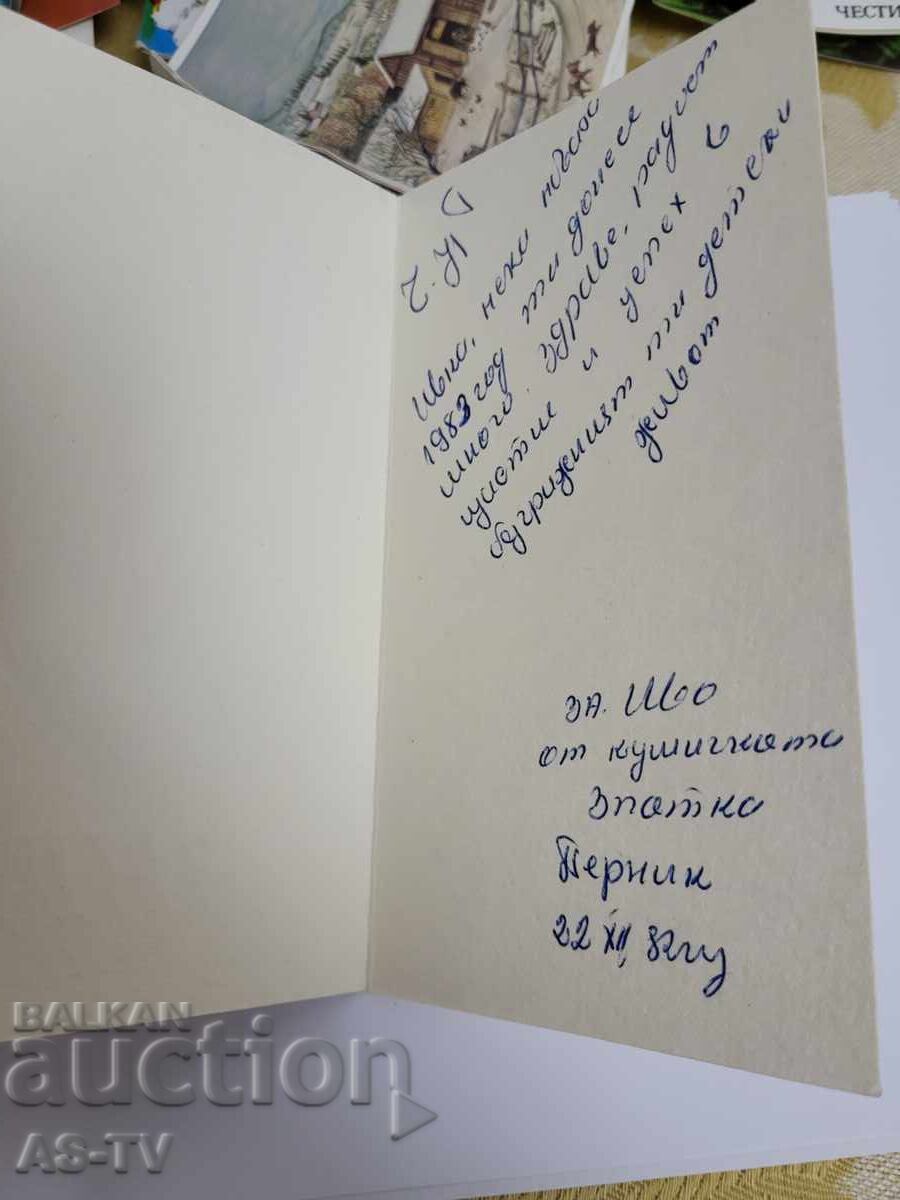 ЧЕСТИ
Ч. Н Г
Ивка, нека новата
1983 год ти донесе
много здраве, радост
щастие и успех в
безгрижният ти детски
живот
За Иво
от кумичката
Златка
Перник
22 XII 82 год
BALKAN
auction
AS-TV